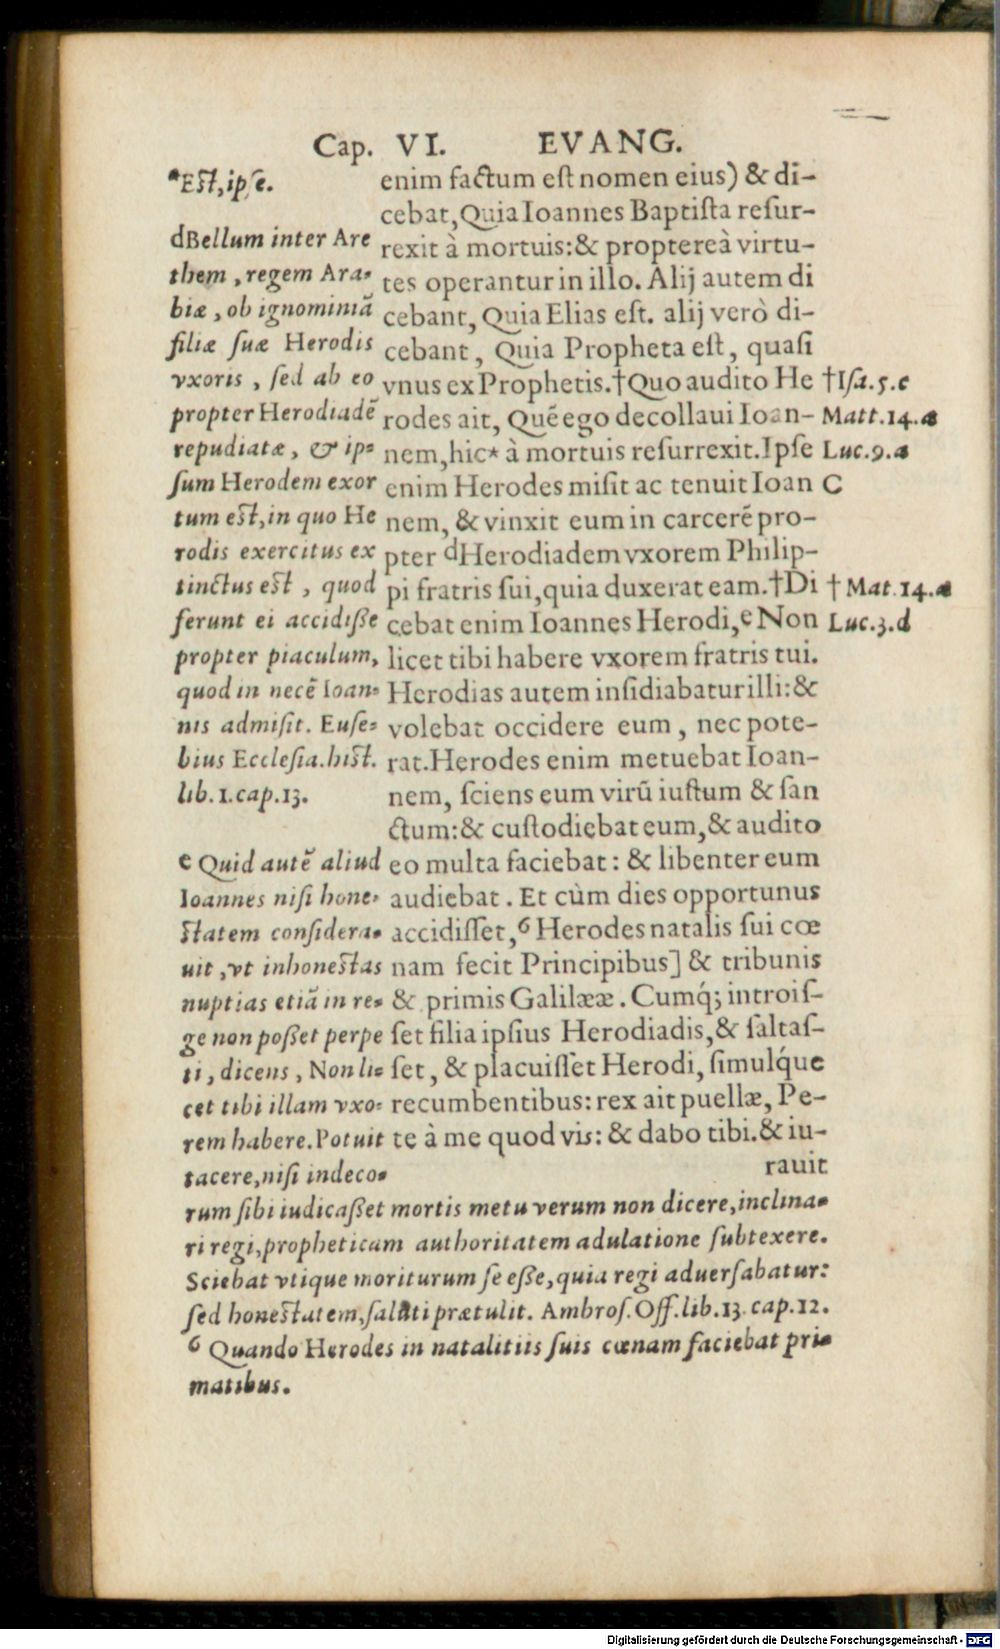 Cap. VI. EVANG.
enim factum eſt nomen eius) & di-
cebat, Quia Ioannes Baptiſta reſur-
rexit à mortuis: & propterеà virtu-
tes operantur in illo. Alij autem di
cebant, Quia Elias eſt. alij verò di-
cebant, Quia Propheta eſt, quaſi
vnus ex Prophetis. †Quo audito He
rodes ait, Quē ego decollaui Ioan-
nem, hic* à mortuis reſurrexit. Ipſe
enim Herodes miſit ac tenuit Ioan
nem, & vinxit eum in carcerē pro-
pter dHerodiadem vxorem Philip-
pi fratris ſui, quia duxerat eam. †Di
cebat enim Ioannes Herodi, eNon
licet tibi habere vxorem fratris tui.
Herodias autem inſidiabatur illi: &
volebat occidere eum, nec pote-
rat. Herodes enim metuebat Ioan-
nem, ſciens eum virū iuſtum & ſan
ctum: & cuſtodiebat eum, & audito
eo multa faciebat: & libenter eum
audiebat. Et cùm dies opportunus
accidiſſet, 6 Herodes natalis ſui cœ
nam fecit Principibus] & tribunis
& primis Galilææ. Cumq́; introiſ-
ſet filia ipſius Herodiadis, & ſaltaſ-
ſet, & placuiſſet Herodi, ſimulq́ue
recumbentibus: rex ait puellæ, Pe-
te à me quod vis: & dabo tibi. & iu-
rauit
*Eſt, ipſe.
dBellum inter Are
them, regem Ara-
biæ, ob ignominiā
filiæ ſuæ Herodis
vxoris, ſed ab eo
propter Herodiadē
repudiatæ, & ip-
ſum Herodem exor
tum eſt, in quo He
rodis exercitus ex
tinctus eſt, quod
ferunt ei accidiſſe
propter piaculum,
quod in necē Ioan-
nis admiſit. Euſe-
bius Eccleſia. hiſt.
lib. 1. cap. 13.
e Quid autē aliud
Ioannes niſi hone-
ſtatem conſidera-
uit, vt inhoneſtas
nuptias etiā in re-
ge non poſſet perpe
ti, dicens, Non li-
cet tibi illam vxo-
rem habere. Potuit
tacere, niſi indeco-
rum ſibi iudicaſſet mortis metu verum non dicere, inclina-
ri regi, propheticam authoritatem adulatione ſubtexere.
Sciebat vtique moriturum ſe eſſe, quia regi aduerſabatur:
ſed honeſtatem, ſaluti prætulit. Ambroſ. Off. lib. 13. cap. 12.
6 Quando Herodes in natalitiis ſuis cœnam faciebat pri-
matibus.
†Iſa. 5. c
Matt. 14. a
Luc. 9. a
C
† Mat. 14. a
Luc. 3. d
Digitalisierung gefördert durch die Deutsche Forschungsgemeinschaft - DFG